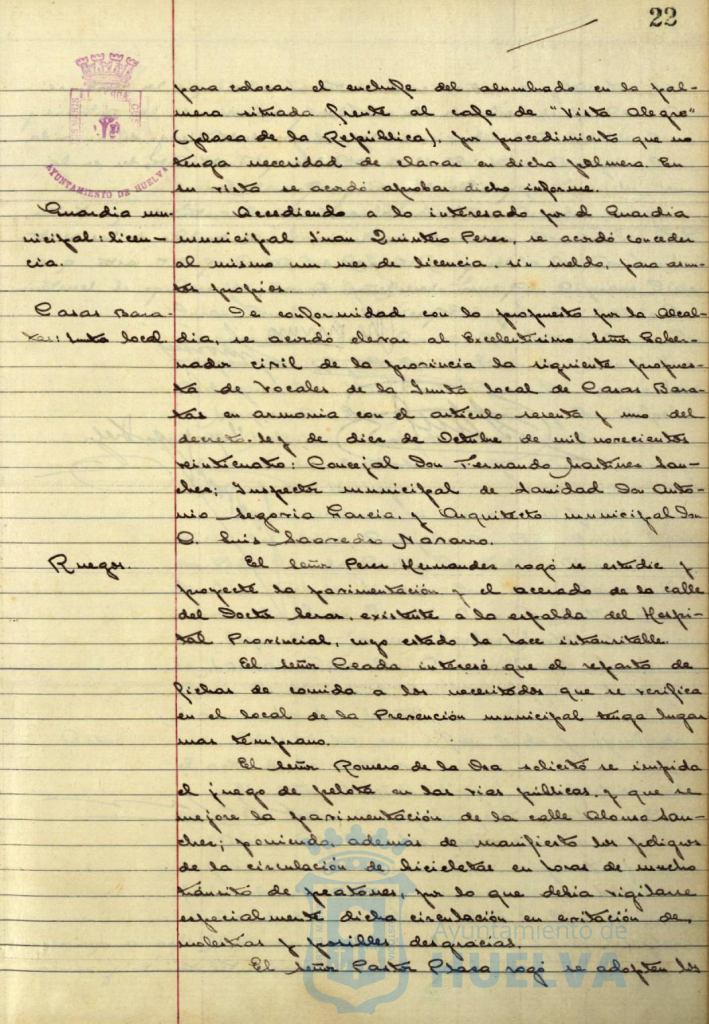 22
para colocar el enchufe del alumbrado en la pal-
mera situada frente al café de "Vista Alegre"
(plaza de la República), por procedimiento que no
tenga necesidad de clavar en dicha palmera. En
su vista se acordó aprobar dicho informe.
AYUNTAMIENTO DE HUELVA
Guardia mu-
nicipal: licen-
cia.
Accediendo a lo interesado por el Guardia
municipal Juan Quintero Perez, se acordó conceder
al mismo un mes de licencia, sin sueldo, para asun-
tos propios.
Casas Bara-
tas: Junta local.
De conformidad con lo propuesto por la Alcal-
dia, se acordó elevar al Excelentísimo Señor Gober-
nador civil de la provincia la siguiente propues-
ta de Vocales de la Junta local de Casas Bara-
tas en armonia con el artículo sesenta y uno del
decreto-ley de diez de Octubre de mil novecientos
veinticuatro: Concejal Don Fernando Martinez San-
chez; Inspector municipal de Sanidad Don Anto-
nio Segovia Garcia, y Arquitecto municipal Don
Luis Saavedra Navarro.
Ruegos.
El Señor Perez Hernandez rogó se estudie y
proyecte la pavimentación y el acerado de la calle
del Doctor Seras, existente a la espalda del Hospi-
tal Provincial, cuyo estado la hace intransitable.
El Señor Ceada interesó que el reparto de
fichas de comida a los necesitados que se verifica
en el local de la Prevención municipal tenga lugar
mas temprano.
El Señor Romero de la Osa solicitó se impida
el juego de pelota en las vias públicas, y que se
mejore la pavimentación de la calle Alonso San-
chez; poniendo, además de manifiesto los peligros
de la circulación de bicicletas en horas de mucho
tránsito de peatones, por lo que debia vigilarse
especialmente dicha circulación en evitación de
molestias y posibles desgracias.
El Señor Pastor Plaza rogó se adopten los
Ayuntamiento de
HUELVA